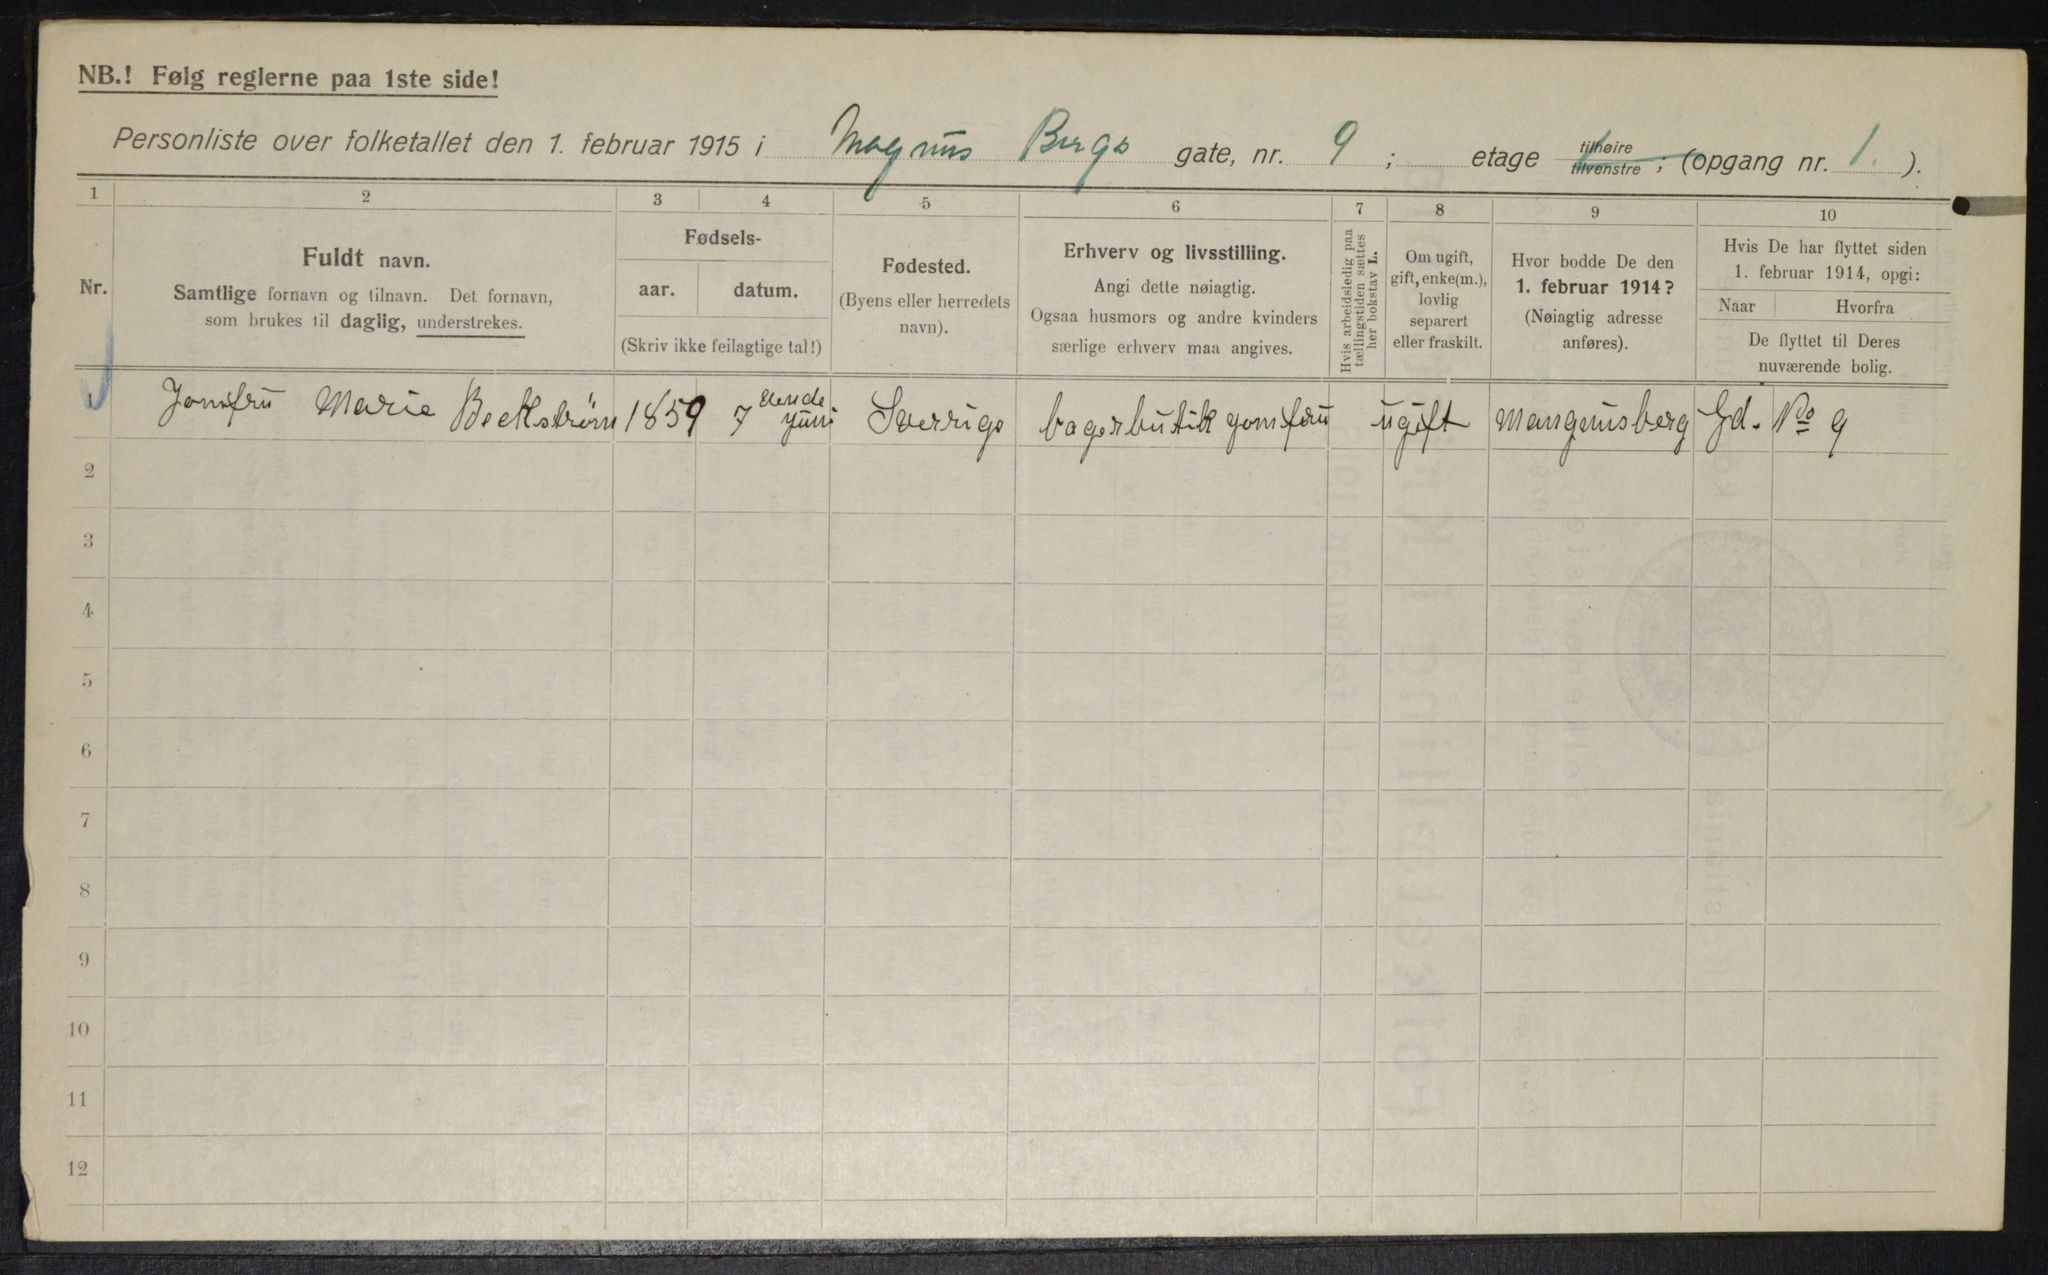 NB.! Følg reglerne paa 1ste side!
Personliste over folketallet den 1. februar 1915 i Magnus Bergs gate, nr. 9 ; etage tilhøire tilvenstre ; (opgang nr. 1. ).
1 2 3 4 5 6 7 8 9 10
Nr.
Fuldt navn.
Samtlige fornavn og tilnavn. Det fornavn,
som brukes til daglig, understrekes.
Fødsels-
aar. datum.
(Skriv ikke feilagtige tal!)
Fødested.
(Byens eller herredets
navn).
Erhverv og livsstilling.
Angi dette nøiagtig.
Ogsaa husmors og andre kvinders
særlige erhverv maa angives.
Hvis arbeidsledig paa
tællingstiden sættes
her bokstav L.
Om ugift,
gift, enke(m.),
lovlig
separert
eller fraskilt.
Hvor bodde De den
1. februar 1914?
(Nøiagtig adresse
anføres).
Hvis De har flyttet siden
1. februar 1914, opgi:
Naar Hvorfra
De flyttet til Deres
nuværende bolig.
1 Jomfru Marie Beckstrøm 1859 7 ende juni Sverrige bagerbutik jomfru ugift Mangnusberg Gd. No 9
2
3
4
5
6
7
8
9
10
11
12